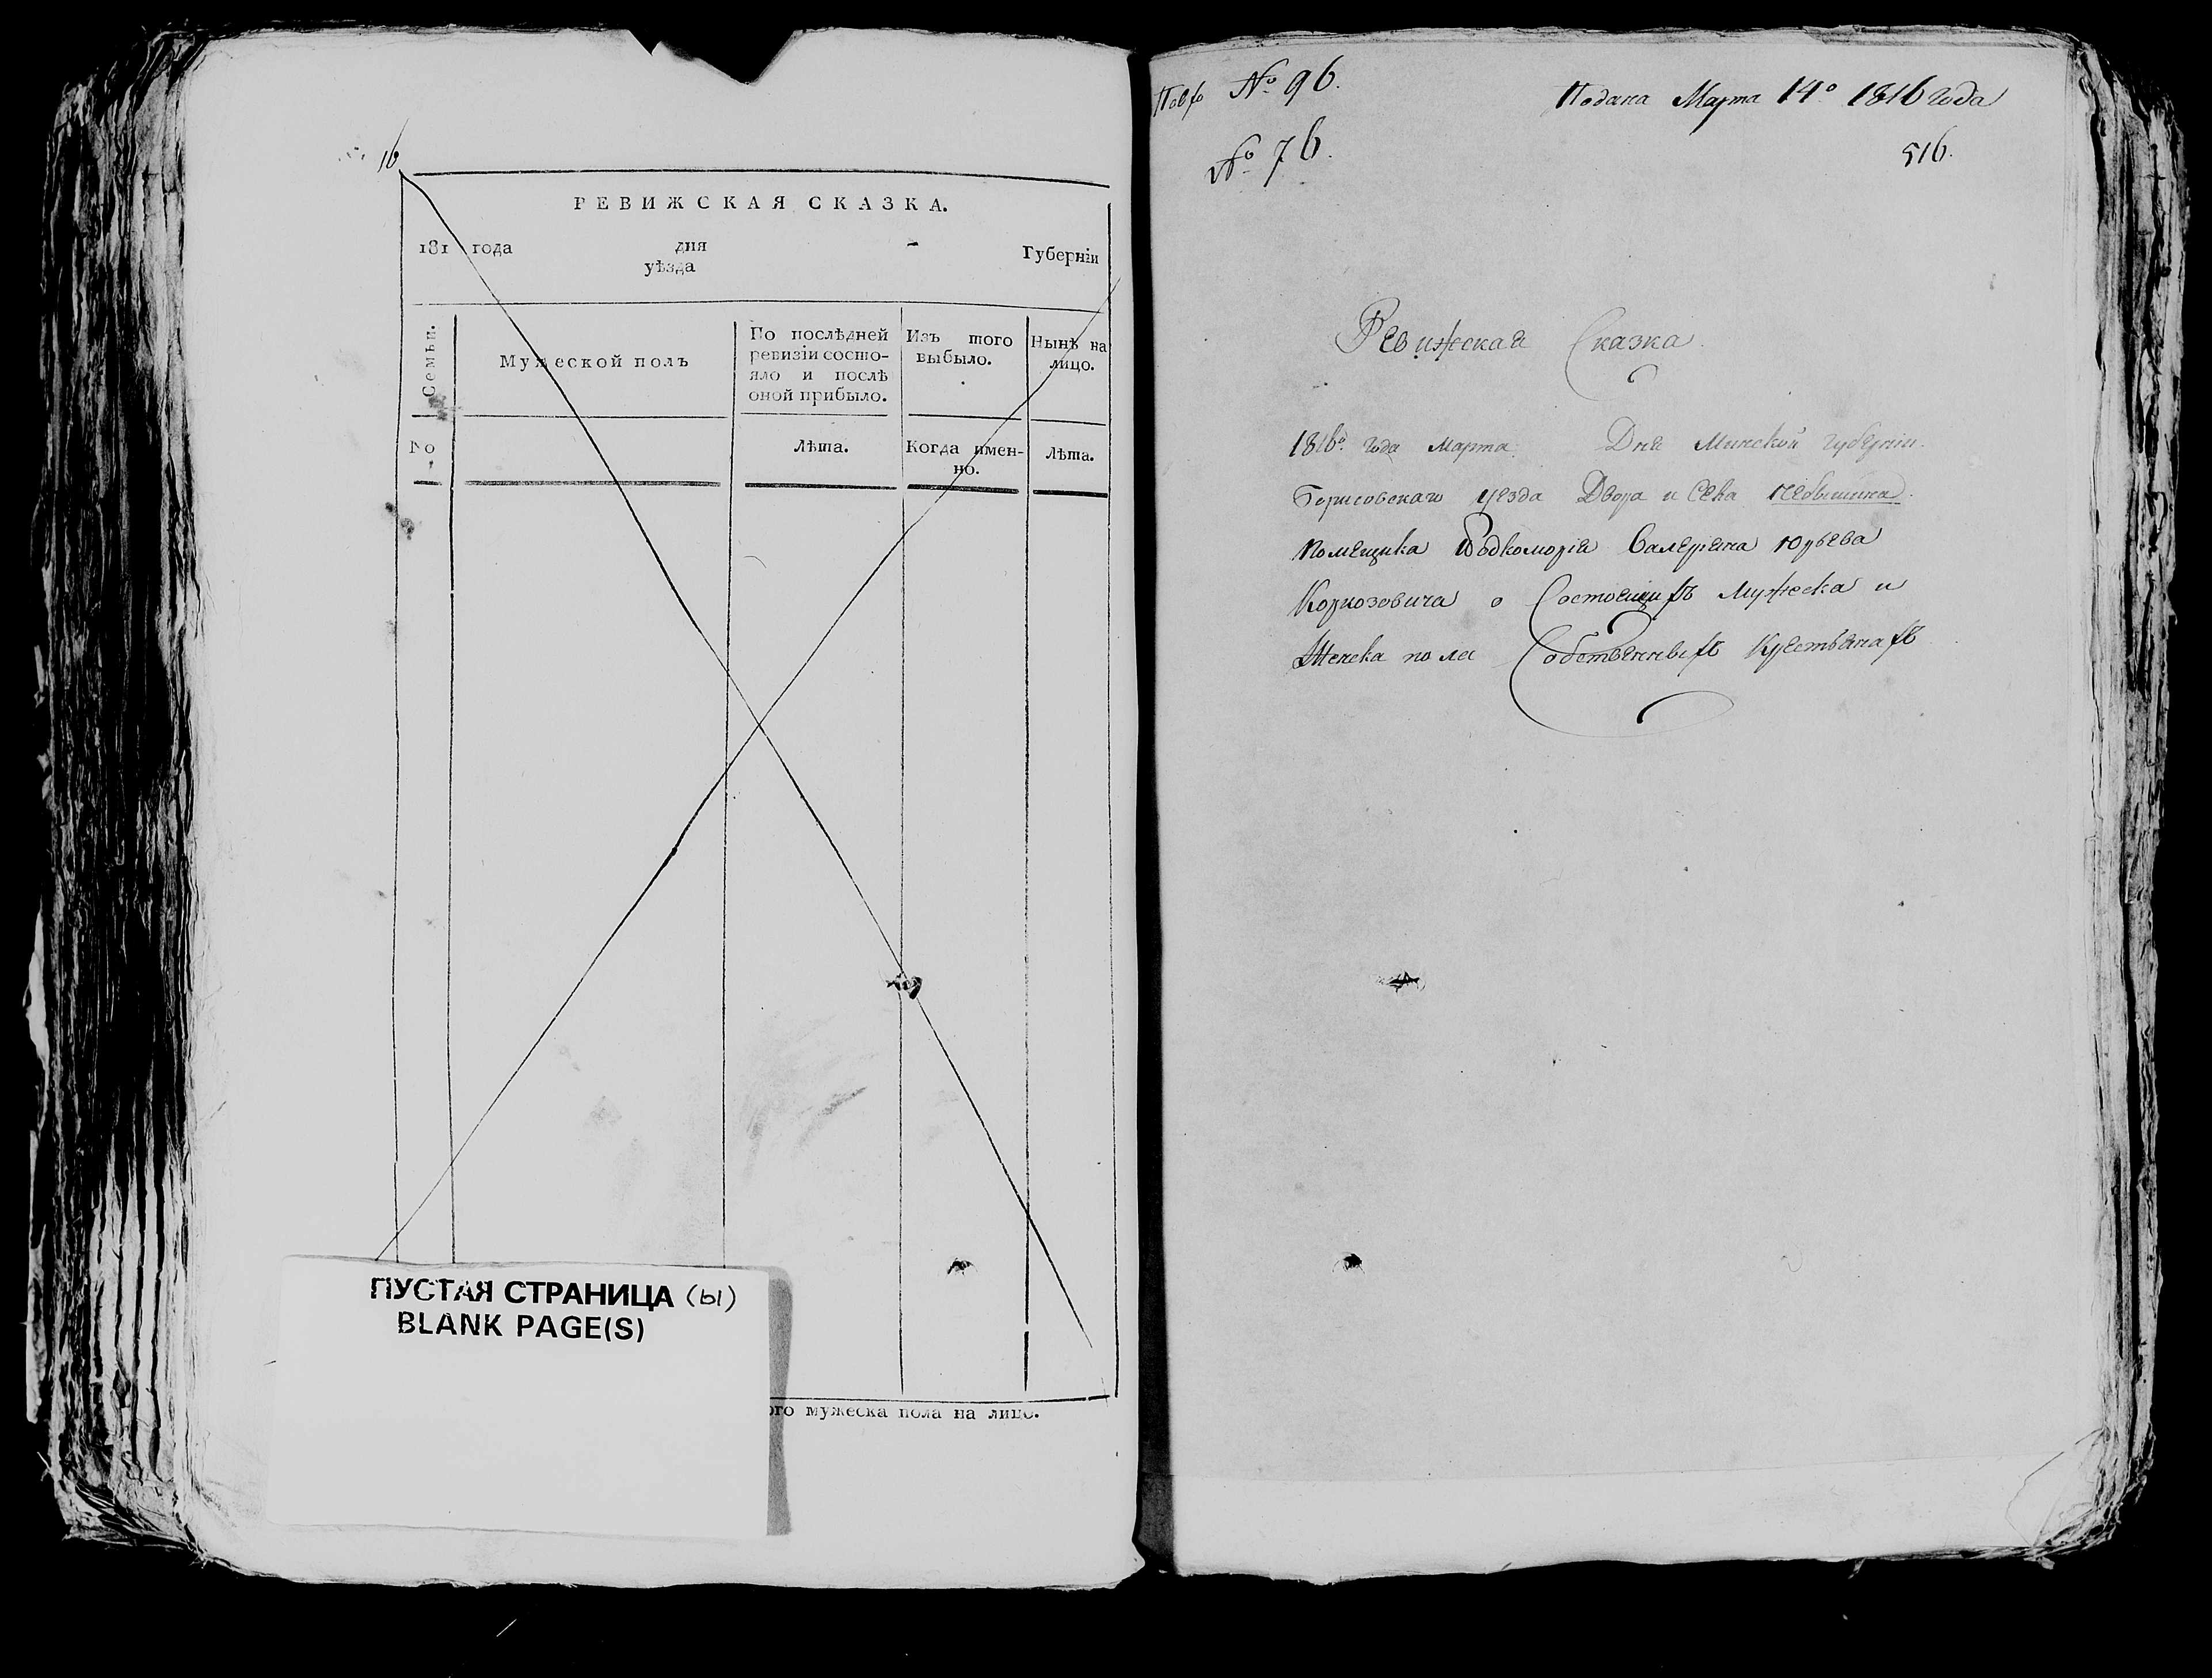 16
РЕВИЖСКАЯ СКАЗКА.
181 года дня Губернїи
уѣзда
Семьи.
Мужеской полъ
По послѣдней ревизїи состо-яло и послѣ оной прибыло.
Изъ того выбыло.
Нынѣ на лицо.
No
Лѣта.
Когда имен-но.
Лѣта.
ПУСТАЯ СТРАНИЦА (ы)
BLANK PAGE(S)
ого мужеска пола на лицо.
№ 96.
Подана Марта 14º 1816 года
№ 76.
516.
Ревижская Сказка
1816º года марта Дня Минской губернии
Борисовскаго уезда Двора и Села
помещика Подкомория Валерияна Юрьева
о Состоящихъ Мужеска и
Женска пола Собственныхъ Крестьянахъ